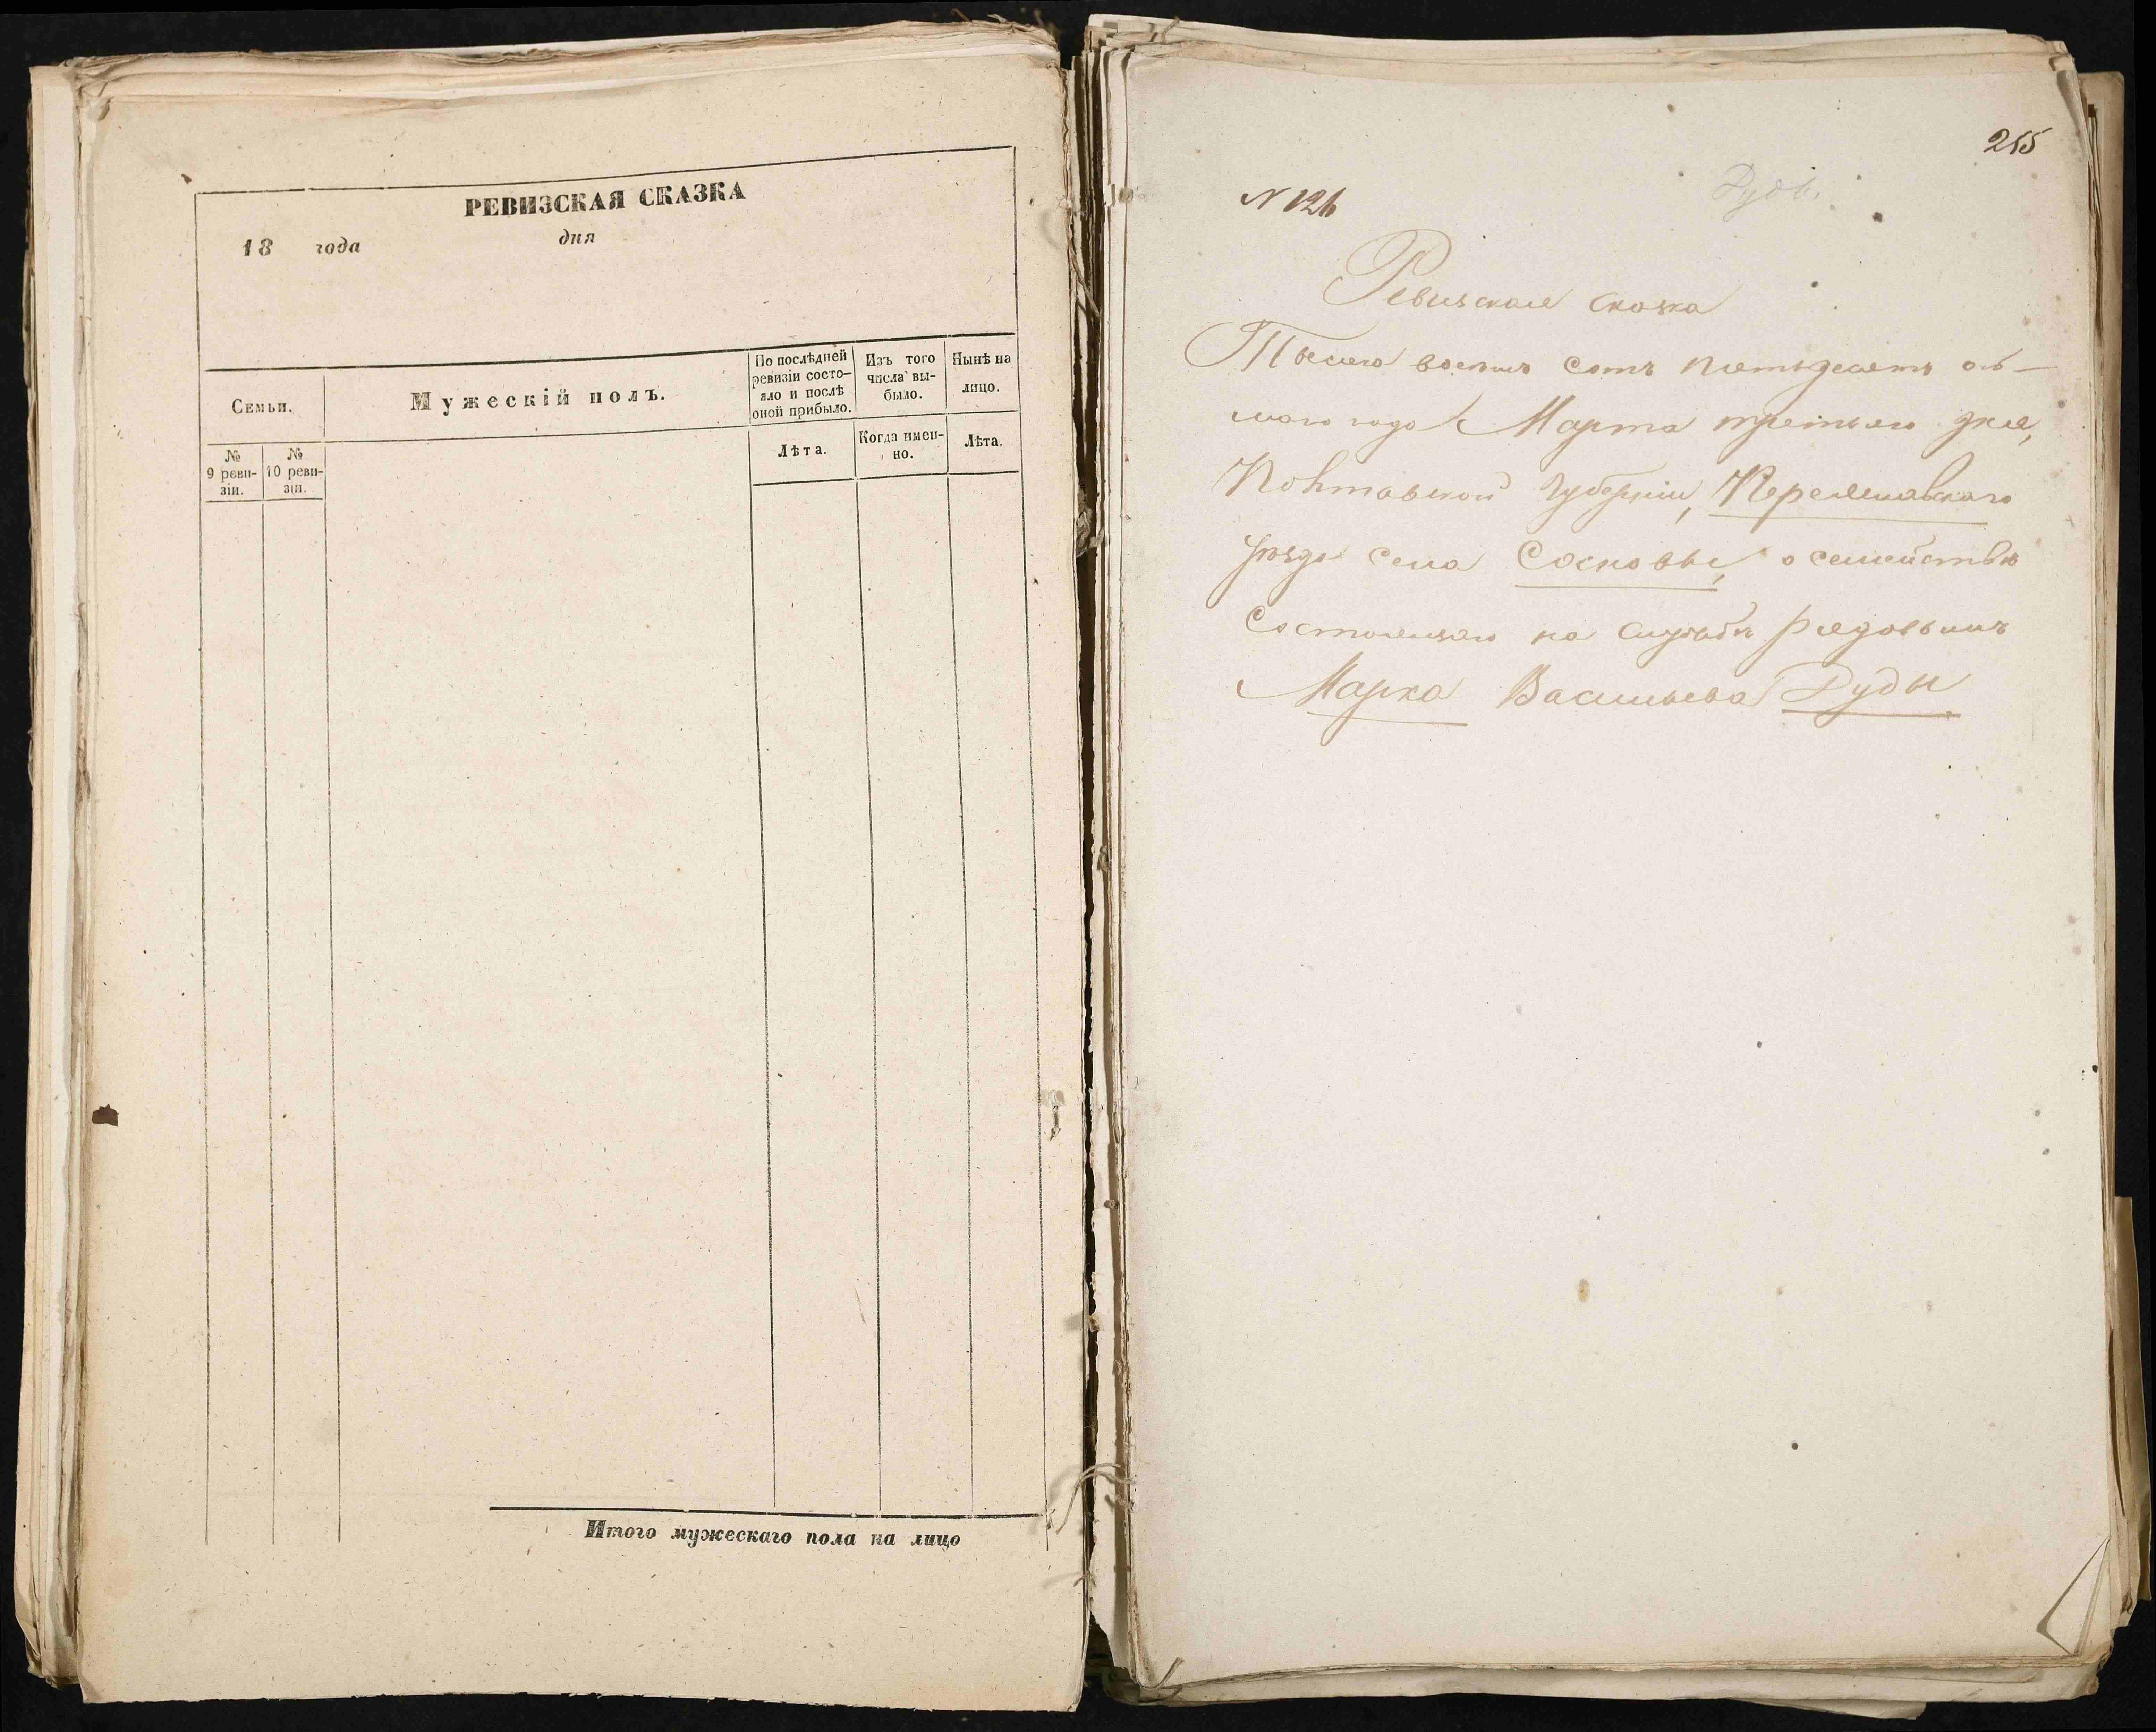 РЕВИЗСКАЯ СКАЗКА
18 года дня
Семьи.
Мужескій полъ.
По послѣдней
ревизіи состо-
яло и послѣ
оной прибыло.
Изъ того
числа вы-
было.
Нынѣ на
лицо.
№
9 реви-
зіи.
№
10 реви-
зіи.
Лѣта.
Когда имен-
но.
Лѣта.
Итого мужескаго пола на лицо
255
N 126
Ревизская сказка
Тысяча восемь сотъ пятьдесятъ ось-
маго года Марта третьяго дня,
Полтавской губерніи, Переяславскаго
уѣзда села Сосновы, о семействѣ
Состоящаго на службѣ рядовымъ
Марка Васильева Руды